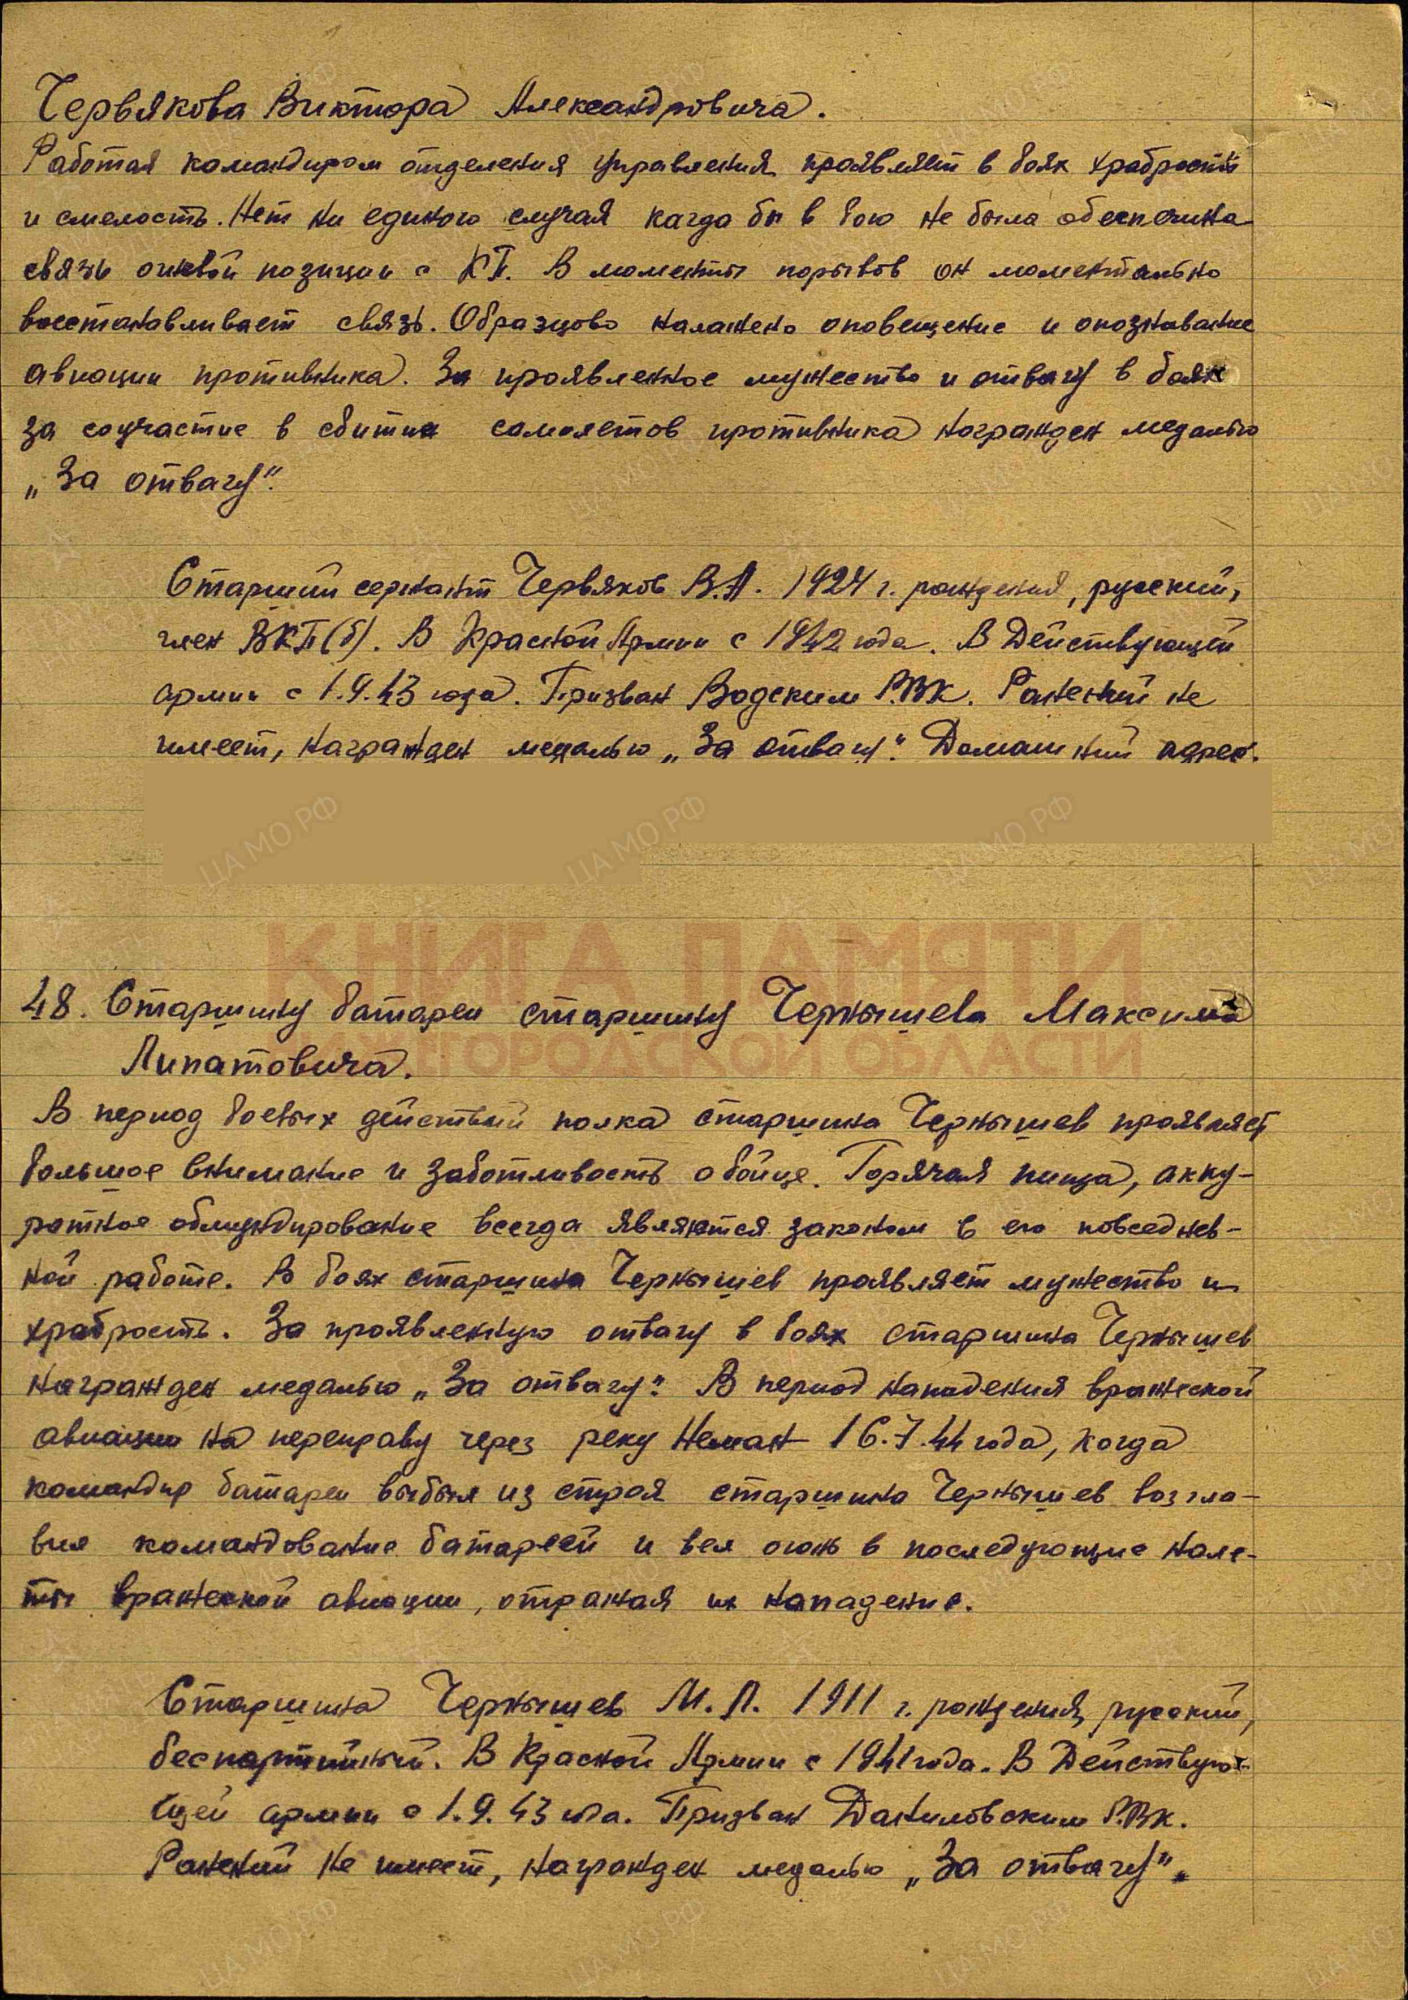 Червякова Виктора Александровича.
Работая командиром отделения управления, проявляет в боях храбрость
и смелость. Нет ни единого случая кагда бы в бою не была обеспечина
связь огневой позиции с КП. В моменты порывов он моментально
восстанавливает связь. Образцово налажено оповещение и опознавание
авиации противника. За проявленное мужество и отвагу в боях
за соучастие в сбитии самолетов противника награжден медалью
„За отвагу".
Старший сержант Червяков В.А. 1924 г. рождения, русский,
член ВКП(б). В Красной Армии с 1942 года. В Действующей
армии с 1.9.43 года. Призван Водским РВК. Ранений не
имеет, награжден медалью „За отвагу". Домашний адрес.
КНИГА ПАМЯТИ
48. Старшину батареи старшину Чернышева Максима
НИЖЕГОРОДСКОЙ ОБЛАСТИ
Липатовича.
В период боевых действий полка старшина Чернышев проявляет
большое внимание и заботливость о бойце. Горячая пища, акку-
ратное обмундирование всегда являются законом в его повседнев-
ной работе. В боях старшина Чернышев проявляет мужество и
храбрость. За проявленную отвагу в боях старшина Чернышев
награжден медалью „За отвагу". В период нападения вражеской
авиации на переправу через реку Неман 16.7.44 года, когда
командир батареи выбыл из строя старшина Чернышев возгла-
вил командование батареей и вел огонь в последующие нале-
ты вражеской авиации, отражая их нападение.
Старшина Чернышев М.Л. 1911 г. рождения, русский,
беспартийный. В Красной Армии с 1941 года. В Действую-
щей армии с 1.9.43 года. Призван Даниловским РВК.
Ранений не имеет, награжден медалью „За отвагу".